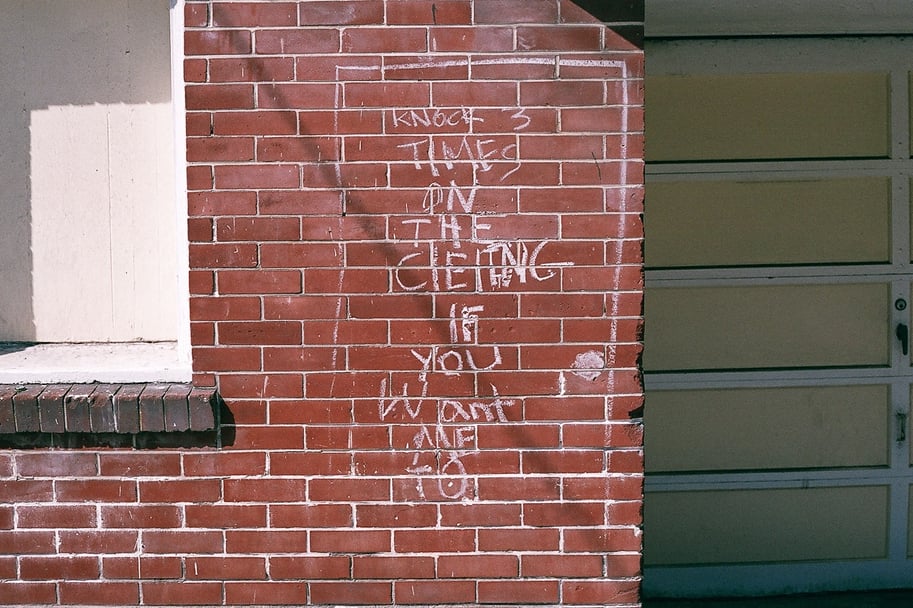 KNOCK 3
TIMES
ON
THE
CIELING
IF
YOU
Want
ME
TO